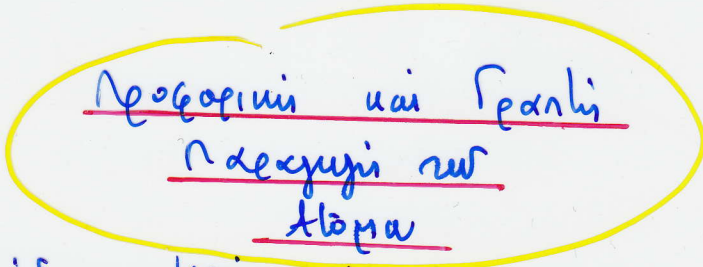 Προφορική και Γραπτή
Παραγωγή του
Ατόμου